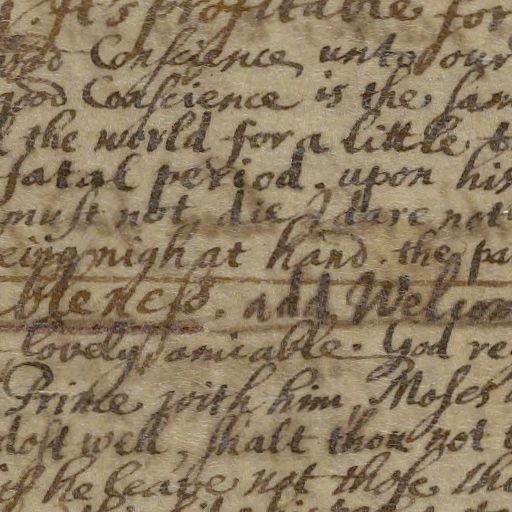 It's profitable for
Conscience unto our
good Conscience is the sam
the world for a little t
fatal period. upon his
must not die I dare not
eing nigh at hand. the pa
bleness. add Welcom
lovely, amicable. God re
Prince with him, Moses
dost well, shalt thou not
if he leave not those thi